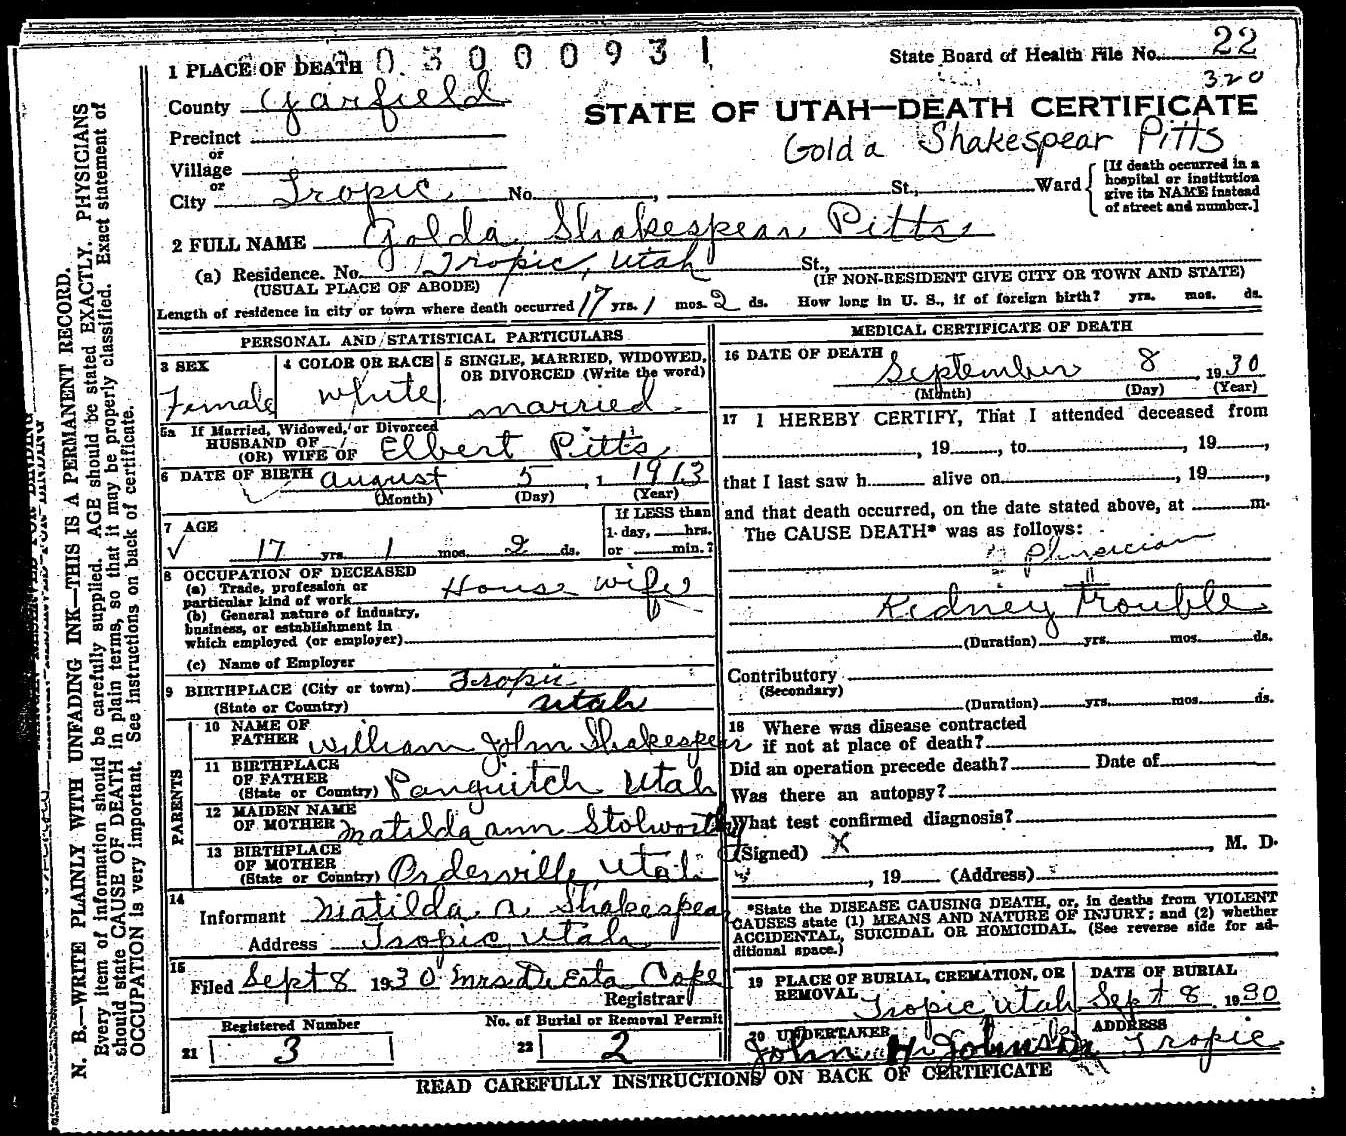 1 PLACE OF DEATH 0 3 0 0 0 9 3 1
State Board of Health File No. 22
320
County Garfield
STATE OF UTAH—DEATH CERTIFICATE
Precinct
Golda Shakespear Pitts
or
Village
or
City Tropic No. , St., Ward
[If death occurred in a
hospital or institution
give its NAME instead
of street and number.]
2 FULL NAME Golda Shakespear Pitts
(a) Residence. No. Tropic, Utah St.,
(USUAL PLACE OF ABODE) (IF NON-RESIDENT GIVE CITY OR TOWN AND STATE)
Length of residence in city or town where death occurred 17 yrs. 1 mos. 2 ds. How long in U. S., if of foreign birth? yrs. mos. ds.
PERSONAL AND STATISTICAL PARTICULARS
3 SEX
Female
4 COLOR OR RACE
White
5 SINGLE, MARRIED, WIDOWED,
OR DIVORCED (Write the word)
married
5a If Married, Widowed, or Divorced
HUSBAND OF
(OR) WIFE OF Elbert Pitts
6 DATE OF BIRTH August 5, 1 1913
(Month) (Day) (Year)
7 AGE
17 yrs. 1 mos. 2 ds.
If LESS than
1 day, hrs.
or min.?
8 OCCUPATION OF DECEASED
(a) Trade, profession or
particular kind of work House wife
(b) General nature of industry,
business, or establishment in
which employed (or employer)
(c) Name of Employer
9 BIRTHPLACE (City or town) Tropic
(State or Country) Utah
PARENTS
10 NAME OF
FATHER William John Shakespear
11 BIRTHPLACE
OF FATHER
(State or Country) Panguitch Utah
12 MAIDEN NAME
OF MOTHER Matilda Ann Stolworthy
13 BIRTHPLACE
OF MOTHER
(State or Country) Orderville Utah
14
Informant Matilda A. Shakespear
Address Tropic, Utah
15
Filed Sept 8 1930 Mrs DeEsta Cope
Registrar
Registered Number
21 3
No. of Burial or Removal Permit
22 2
MEDICAL CERTIFICATE OF DEATH
16 DATE OF DEATH September 8, 1930
(Month) (Day) (Year)
17 I HEREBY CERTIFY, That I attended deceased from
, 19 , to , 19 ,
that I last saw h alive on , 19 ,
and that death occurred, on the date stated above, at m.
The CAUSE DEATH* was as follows:
Physician
Kidney Trouble
(Duration) yrs. mos. ds.
Contributory
(Secondary)
(Duration) yrs. mos. ds.
18 Where was disease contracted
if not at place of death?
Did an operation precede death? Date of
Was there an autopsy?
What test confirmed diagnosis?
(Signed) X , M. D.
, 19 (Address)
*State the DISEASE CAUSING DEATH, or, in deaths from VIOLENT
CAUSES state (1) MEANS AND NATURE OF INJURY; and (2) whether
ACCIDENTAL, SUICIDAL OR HOMICIDAL. (See reverse side for ad-
ditional space.)
19 PLACE OF BURIAL, CREMATION, OR
REMOVAL Tropic Utah
DATE OF BURIAL
Sept 8, 1930
20 UNDERTAKER
John H. Johnson
ADDRESS
Tropic
READ CAREFULLY INSTRUCTIONS ON BACK OF CERTIFICATE
N. B.—WRITE PLAINLY WITH UNFADING INK—THIS IS A PERMANENT RECORD.
Every item of information should be carefully supplied. AGE should be stated EXACTLY. PHYSICIANS
should state CAUSE OF DEATH in plain terms, so that it may be properly classified. Exact statement of
OCCUPATION is very important. See instructions on back of certificate.